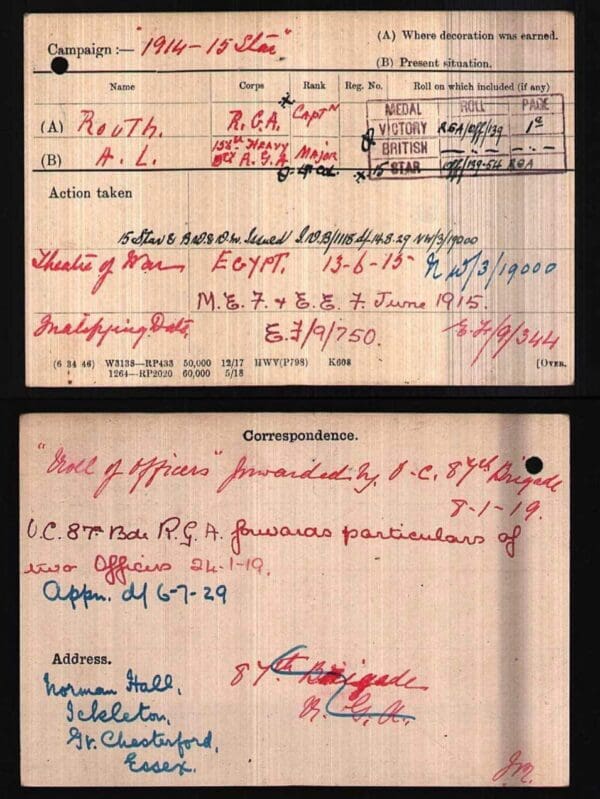 Campaign :— "1914–15 Star"
(A) Where decoration was earned.
(B) Present situation.
Name Corps Rank Reg. No. Roll on which included (if any)
(A) Routh. R.G.A. Captn
MEDAL ROLL PAGE
VICTORY RGA/off/139 1a
(B) A. L. Heavy R.G.A. Major
BRITISH — " — — " —
15 STAR off/139-54 RGA
Action taken
15 Star & B.W. & V.M. Issued I.V.B/1118 d/14.8.29 NW/3/19000
Theatre of War EGYPT. 13-6-15 NW/3/19000
M.E.F. & E.E.F. June 1915.
Qualifying Date. E.F/9/750. E.F/9/344
(6 34 46) W3138—RP433 50,000 12/17 HWV(P798) K608 (OVER.
1264—RP2020 60,000 5/18
Correspondence.
"Roll of Officers" forwarded by O.C. 87th Brigade
8-1-19.
O.C. 87 Bde R.G.A. forwards particulars of
two Officers 24-1-19.
Appn. d/ 6-7-29
Address.
87th Brigade
R.G.A.
Norman Hall,
Ickleton,
Gt. Chesterford,
Essex.